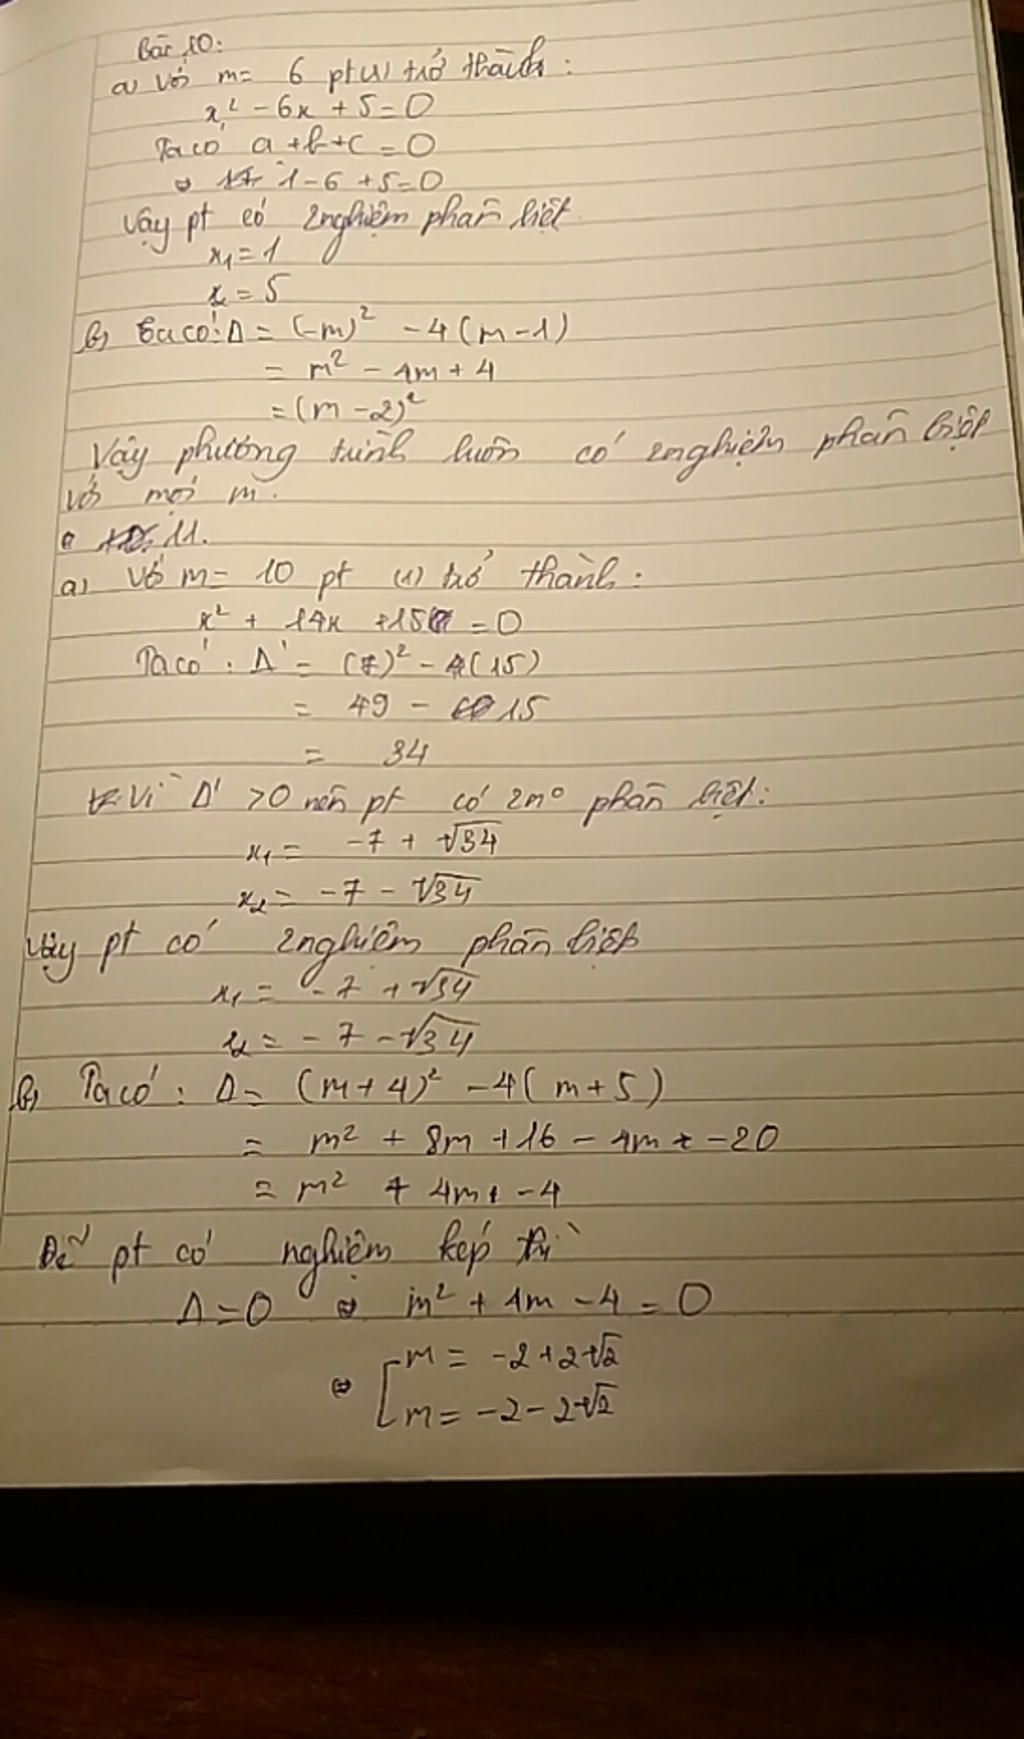 Bài 10:
a) Với m = 6 pt (1) trở thành:
x² - 6x + 5 = 0
Ta có a + b + c = 0
⇔ 1 - 6 + 5 = 0
Vậy pt có 2 nghiệm phân biệt
x₁ = 1
x₂ = 5
b) Ta có: Δ = (-m)² - 4(m - 1)
= m² - 4m + 4
= (m - 2)²
Vậy phương trình luôn có 2 nghiệm phân biệt
với mọi m.
11.
a) Với m = 10 pt (1) trở thành:
x² + 14x + 15 = 0
Ta có: Δ' = (7)² - (15)
= 49 - 15
= 34
Vì Δ' > 0 nên pt có 2n⁰ phân biệt:
x₁ = -7 + √34
x₂ = -7 - √34
Vậy pt có 2 nghiệm phân biệt
x₁ = -7 + √34
x₂ = -7 - √34
b) Ta có: Δ = (m + 4)² - 4(m + 5)
= m² + 8m + 16 - 4m - 20
= m² + 4m - 4
Để pt có nghiệm kép thì
Δ = 0 ⇔ m² + 4m - 4 = 0
⇔ [ m = -2 + 2√2
m = -2 - 2√2